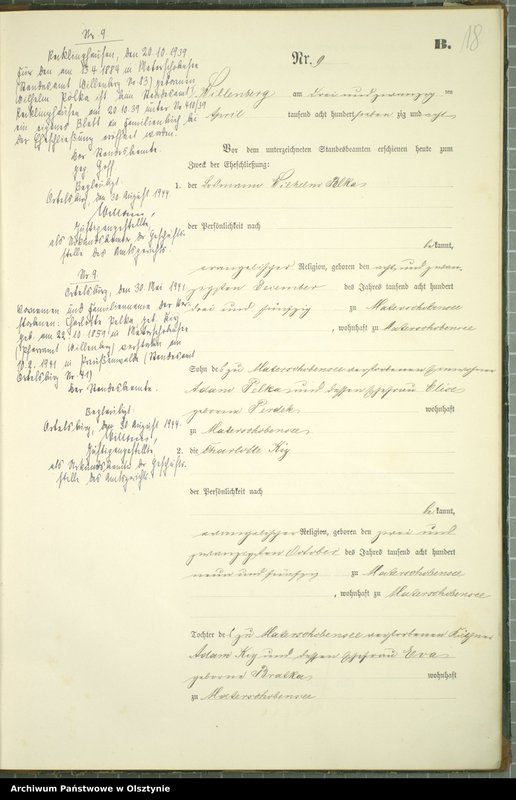 B.
18
Nr. 9
Willenberg am drei und zwanzig ten
April tausend acht hundert sieben zig und acht
Vor dem unterzeichneten Standesbeamten erschienen heute zum
Zweck der Eheschließung:
1. der Losmann Wilhelm Polka
der Persönlichkeit nach
bekannt,
evangelischer Religion, geboren den acht und zwan-
zigsten Dezember des Jahres tausend acht hundert
drei und fünfzig zu Materschobensee
, wohnhaft zu Materschobensee
Sohn des zu Materschobensee verstorbenen
Adam Polka und dessen Ehefrau Elise
geborene wohnhaft
zu Materschobensee
2. die Charlotte Kiy
der Persönlichkeit nach
bekannt,
evangelischer Religion, geboren den zwei und
zwanzigsten October des Jahres tausend acht hundert
neun und fünfzig zu Materschobensee
, wohnhaft zu Materschobensee
Tochter des zu Materschobensee verstorbenen Käthner
Adam Kiy und dessen Ehefrau Eva
geborne wohnhaft
zu Materschobensee
Nr 9.
Recklinghausen, den 20.10.1939
Für den am 4 1884 in Materschobensee
(Standesamt Willenberg No 23) geborenen
Wilhelm Polka ist vom Standesamt
Recklinghausen am 20.10.39 unter No 410/39
ein eigenes Blatt im Familienbuch bei
der Eheschließung eröffnet worden.
Der Standesbeamte.
gez.
Beglaubigt.
Ortelsburg, den 30. August 1944.
Justizangestellte
als Urkundsbeamter der Geschäfts-
stelle des Amtsgerichts.
Nr. 9.
Ortelsburg, den 30. Mai 1941.
Vornamen und Familienname der Ver-
storbenen: Charlotte Polka geb. Kiy
geb. am 22.10.1859 in Materschobensee
(Pfarramt Willenberg) verstorben am
10.2.1941 in Preußenwalde (Standesamt
Ortelsburg Nr. 41)
Der Standesbeamte.
Beglaubigt.
Ortelsburg, den 30. August 1944.
Justizangestellte
als Urkundsbeamter der Geschäfts-
stelle des Amtsgerichts.
Archiwum Państwowe w Olsztynie